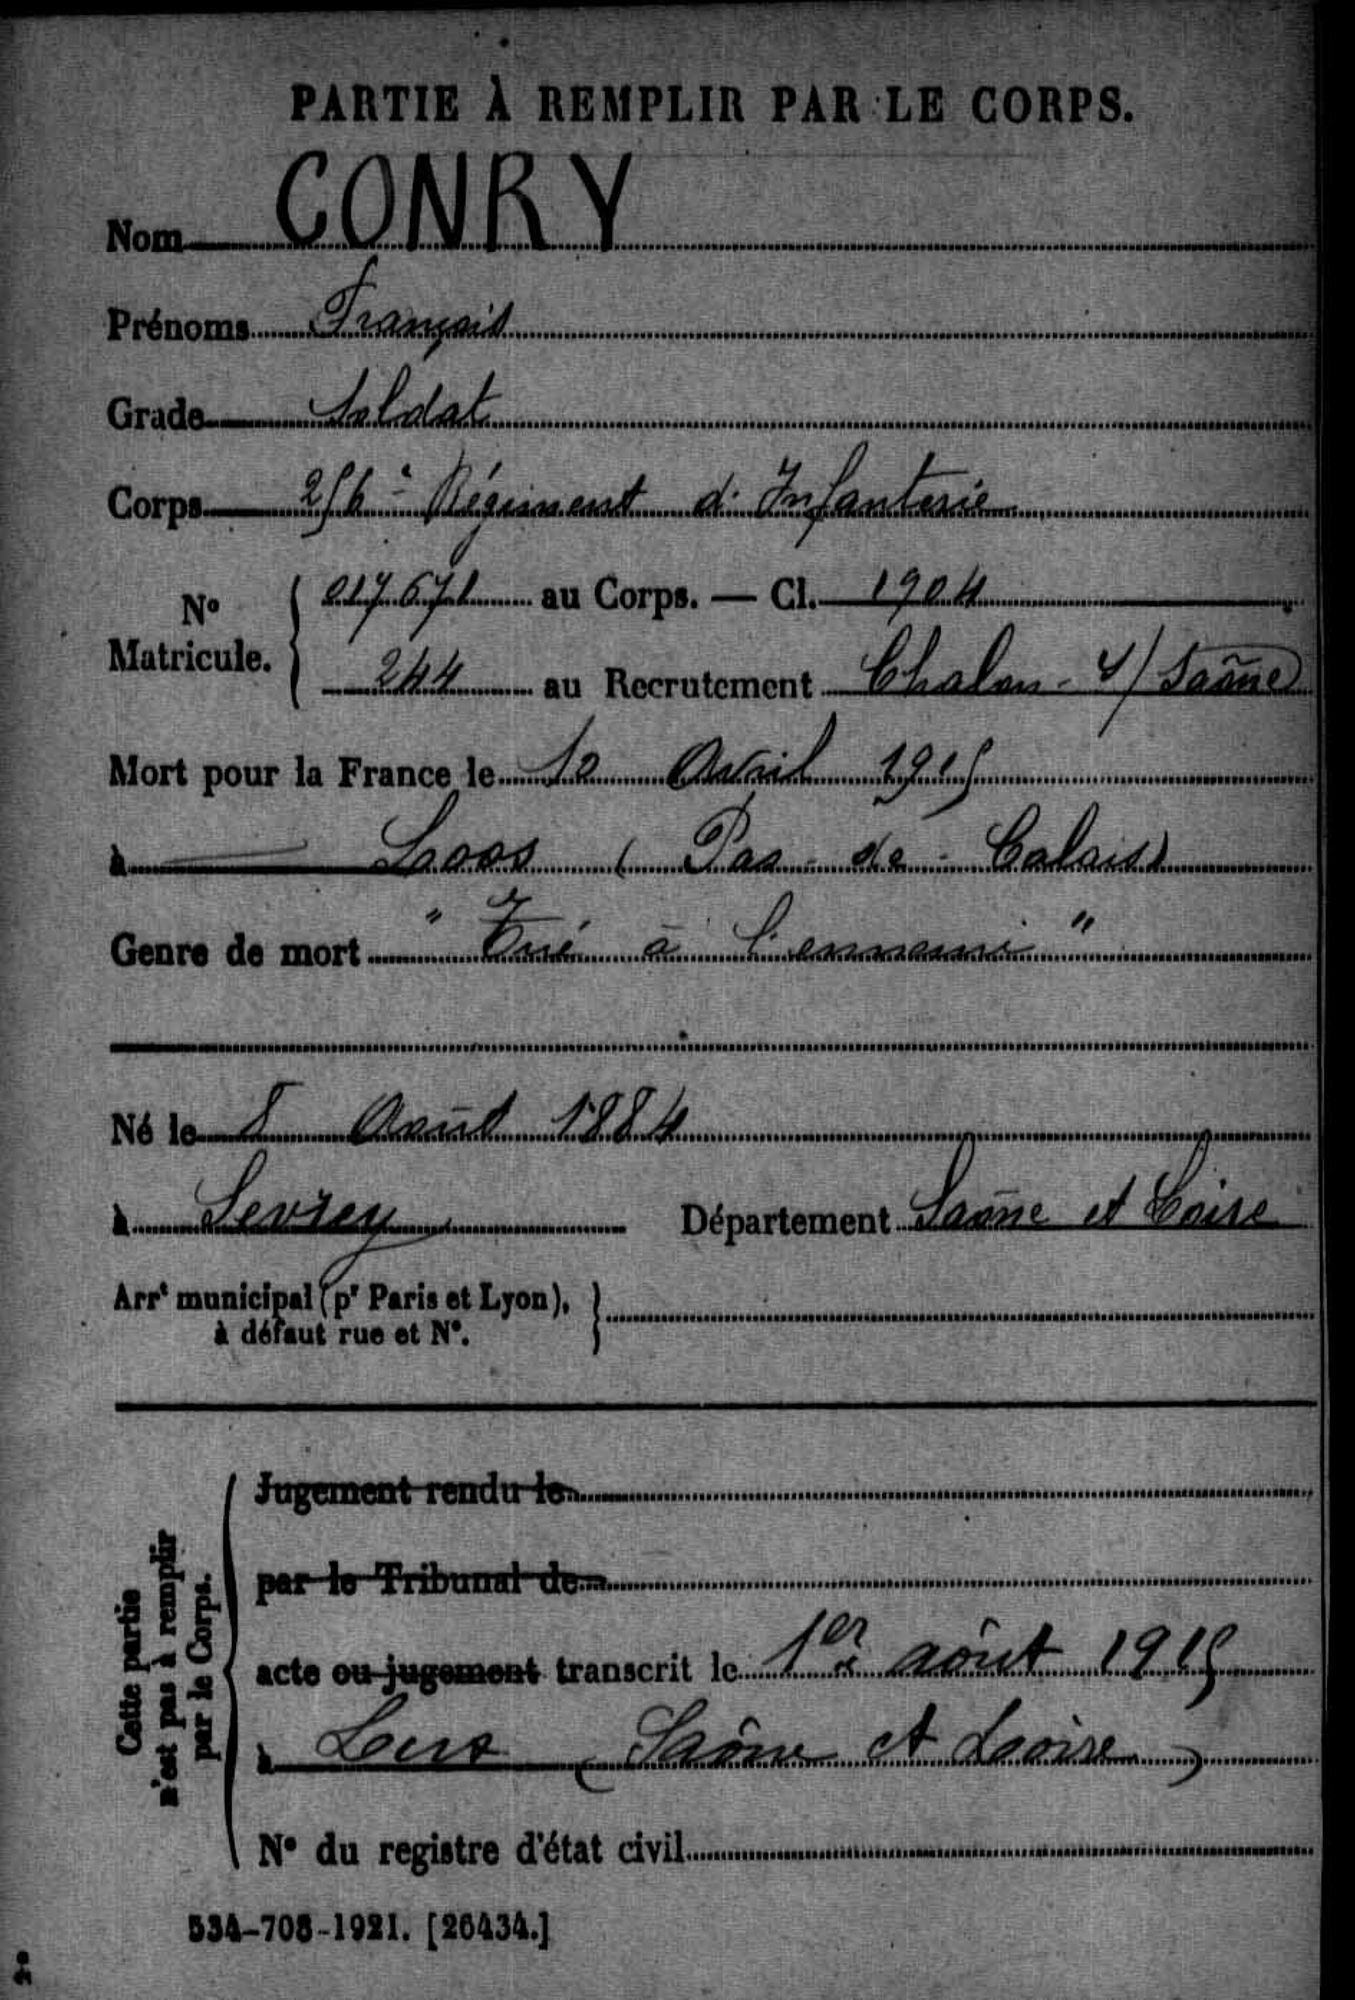 PARTIE À REMPLIR PAR LE CORPS.
Nom CONRY
Prénoms François
Grade Soldat
Corps 256e Régiment d'Infanterie
No Matricule. { 017671 au Corps. — Cl. 1904
244 au Recrutement Chalon-s/Saône
Mort pour la France le 10 Avril 1915
à Loos (Pas-de-Calais)
Genre de mort "Tué à l'ennemi"
Né le 8 Août 1884
à Sevrey Département Saône et Loire
Arrt municipal (pr Paris et Lyon),
à défaut rue et No.
Cette partie
n'est pas à remplir
par le Corps.
Jugement rendu le
par le Tribunal de
acte ou jugement transcrit le 1er août 1915
à Lux (Saône et Loire)
No du registre d'état civil
534-708-1921. [26434.]